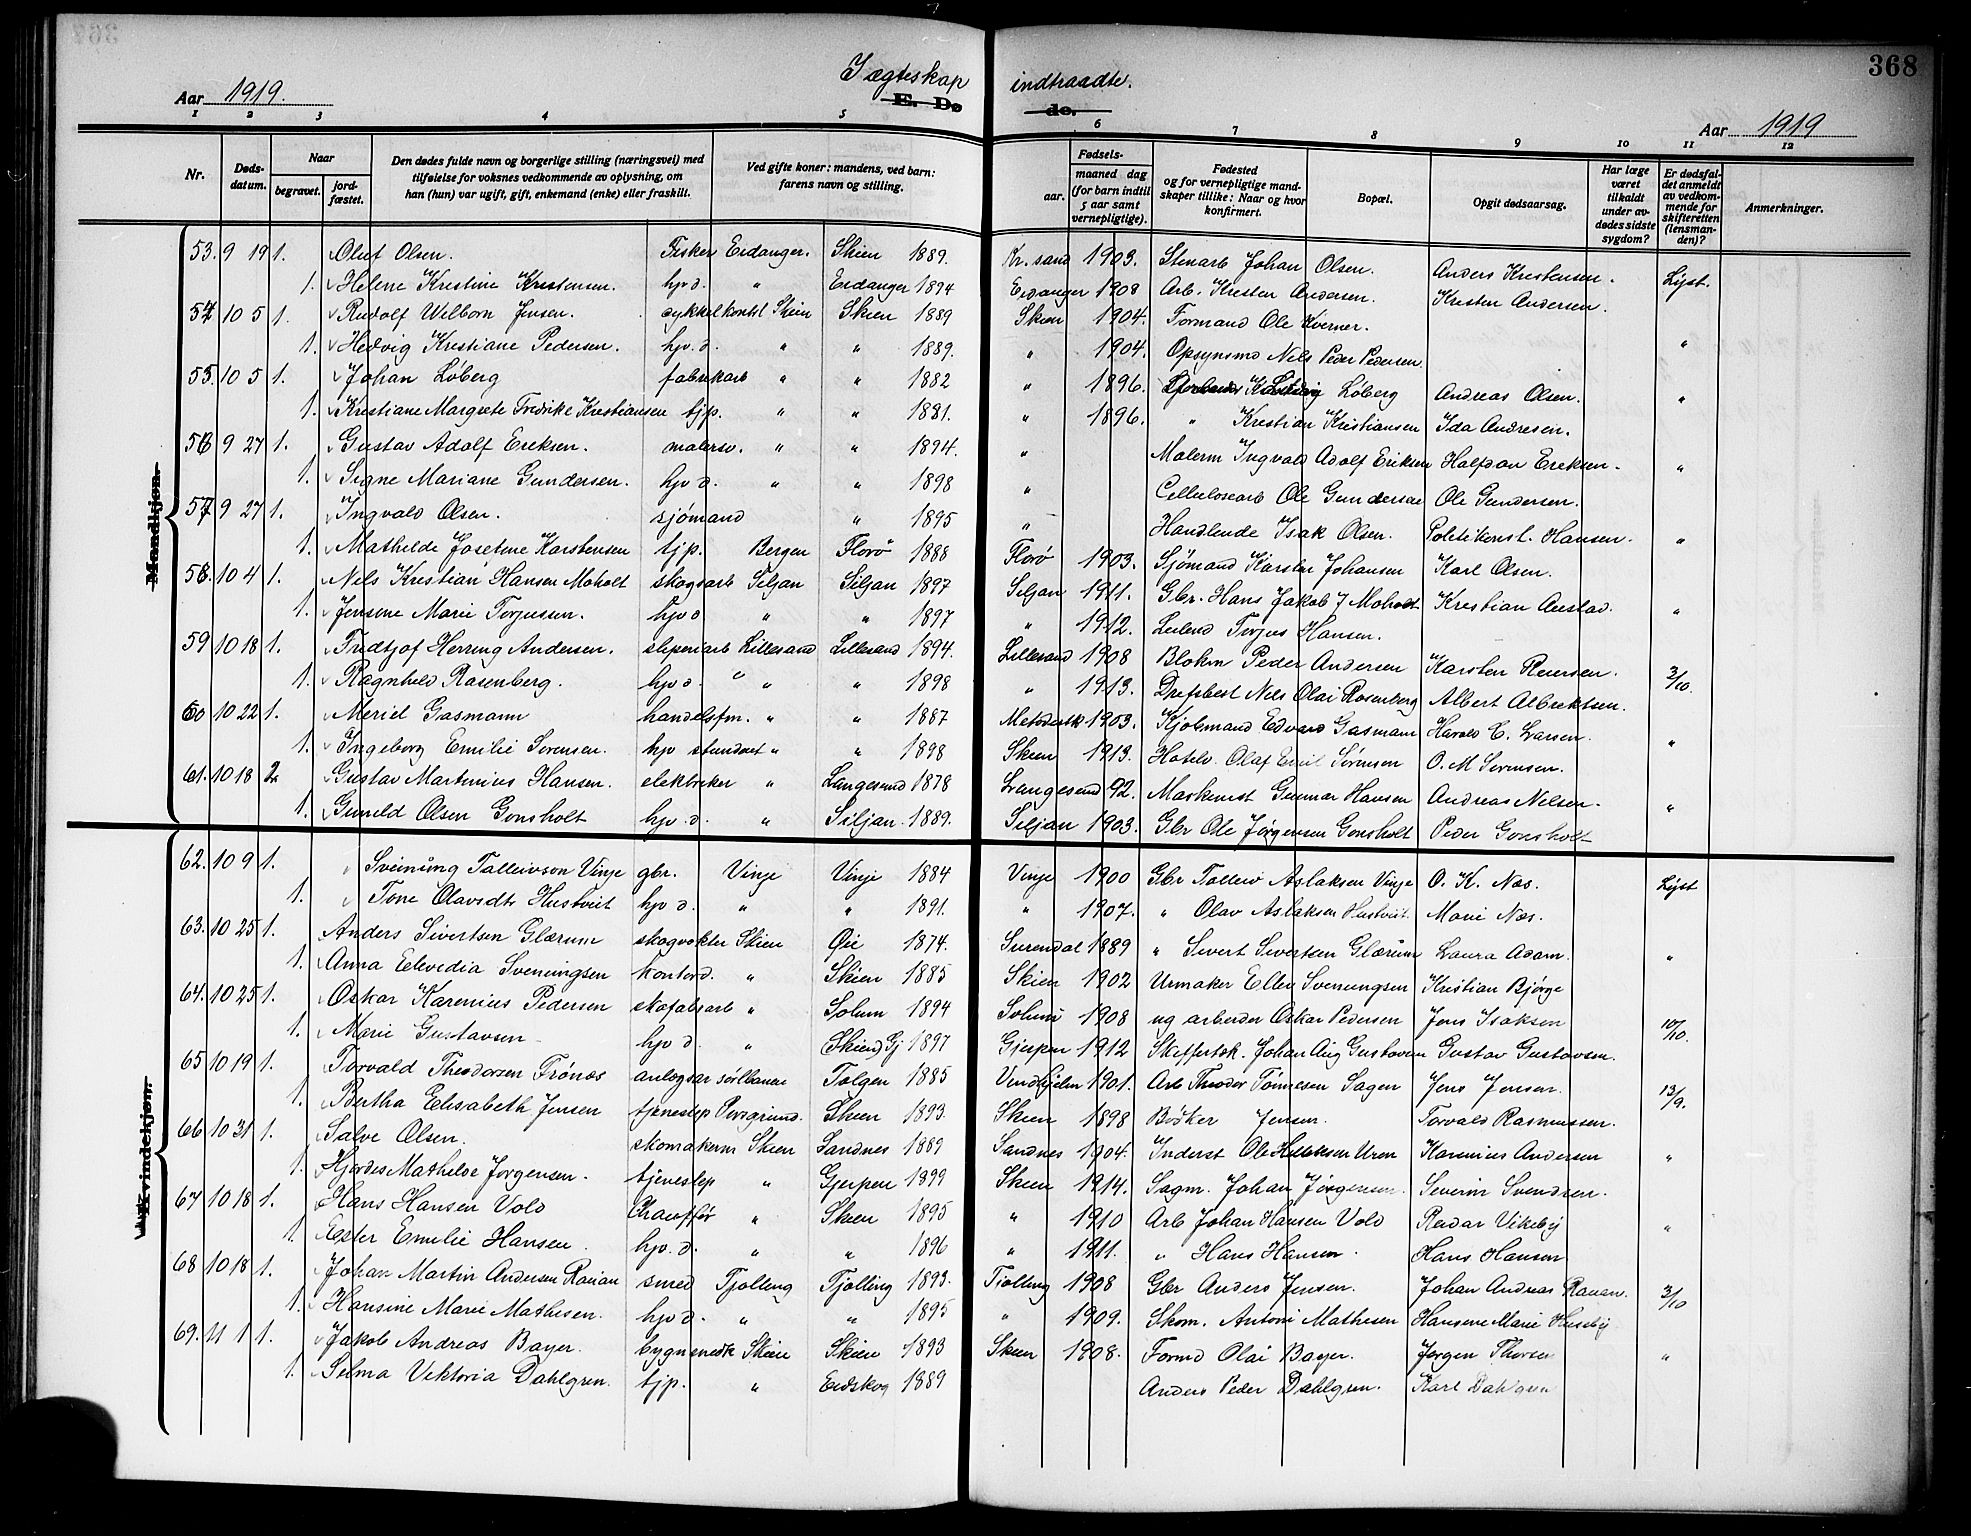 368
Aar 1919. Iægteskap indtraadte. Aar 1919
E. Dø de.
1 2 3 4 5 6 7 8 9 10 11 12
Nr.
Døds-datum.
Naar
begravet. jord-fæstet.
Den dødes fulde navn og borgerlige stilling (næringsvei) med tilføielse for voksnes vedkommende av oplysning, om han (hun) var ugift, gift, enkemand (enke) eller fraskilt.
Ved gifte koner: mandens, ved barn: farens navn og stilling.
Fødsels-
aar. maaned dag (for barn indtil 5 aar samt vernepligtige).
Fødested og for vernepligtige mandskaper tillike: Naar og hvor konfirmert.
Bopæl.
Opgit dødsaarsag.
Har læge været tilkaldt under avdødes sidste sygdom?
Er dødsfaldet anmeldt av vedkommende for skifteretten (lensmanden)?
Anmerkninger.
Mandkjøn.
53. 9 19 1. Oluf Olsen. Fisker Eidanger. Skien 1889. Kr. sand 1903. Stenarb Johan Olsen. Anders Kristensen. Lyst.
1. Helene Kristine Kristensen. hjv d. " Eidanger 1894 Eidanger 1908 Arb. Kristen Andersen. Kristen Andersen.
54 10 5 1. Rudolf Wilborn Jensen. cykkelkontl Skien Skien 1889 Skien 1904. Formand Ole Kverner. "
1. Hedvig Kristiane Pedersen. hjv. d. " " 1889. " 1904. Opsynsmd Nels Peder Pedersen
55. 10 5 1. Johan Løberg fabrikarb " " 1882 " 1896. Løberg Andreas Olsen. "
1. Kristiane Margrete Fredrike Kristiansen tjp. " " 1881. " 1896. " Kristian Kristiansen Ida Andresen.
56 9 27 1. Gustav Adolf Ereksen. malersv. " " 1894. " Malerm Ingvald Adolf Eriksen Halfdan Ereksen. "
1. Signe Mariane Gundersen. hjv d. " " 1898 " Cellulosearb Ole Gundersen Ole Gundersen.
57 9 27 1. Ingvald Olsen. sjømand " 1895 " Handlende Isak Olsen. Politikonst. Hansen. "
1. Mathilde Josefine Karstensen tjp. Bergen Florø 1888 Florø 1903. Sjømand Karsten Johansen Karl Olsen.
58. 10 4 1. Nels Kristian Hansen Moholt skogsarb Siljan Siljan 1897 Siljan 1911. Gbr. Hans Jakob J Moholt Kristian Austad. "
1. Jensine Marie Torjusen. hjv d " " 1897 " 1912. Leilend Torjus Hansen.
59 10 18 1. Fridtjof Herring Andersen. sleperiarb Lillesand Lillesand 1894. Lillesand 1908 Blokm Peder Andersen Karsten Reiersen. 2/10.
1. Ragnhild Rosenberg. hjv d. " " 1898 " 1913. Drefsbest Nils Olai Rosenberg Albert Albrektsen.
60 10 22 1. Meriel Gasmann handelsfm. " " 1887 Metodistk 1903. Kjøbmand Edvard Gasmann Harald C. Larsen. "
1. Ingeborg Emilie Sørensen. hjv " " 1898 Skien 1913. Hotelv. Olaf Emil Sørensen O. M Sørensen.
61. 10 18 2 Gustav Martinius Hansen. elektriker " Langesund 1878 Langesund 92. Maskinist Gunnar Hansen Andreas Nelsen. "
1. Gunild Olsen Gonsholt hjv. d. " Siljan. 1889. Siljan 1903. Gbr Ole Jørgensen Gonsholt Peder Gonsholt
Kvindekjøn.
62. 10 9 1. Sveinung Talleivson Vinje gbr. Vinje Vinje 1884 Vinje 1900 Gbr Tolleiv Aslaksen Vinje O. K. Næs. Lyst
1. Tone Olavsdtr Hustveit hjv d. " " 1891. " 1907. " Olav Aslaksen Hustveit. Marie Næs.
63. 10 25 1. Anders Sivertsen Glærum skogvokter Skien Øie 1874. Surendal 1889 " Sivert Sivertsen Glærum Laura Adam. "
1. Anna Elevedia Sveningsen kontord. " Skien 1885 Skien 1902 Urmaker Ellev Svenungsen Kristian Bjørge
64. 10 25 1. Oskar Karenius Pedersen skofabarb " Solum 1894 Solum 1908 ug arbeider Oskar Pedersen Jens Isaksen 10/10.
1. Marie Gustavsen hjv d. " Skien) Gj 1897 Gjerpen 1912 Skiffertæk. Johan Aug Gustavsen Gustav Gustavsen.
65 10 19 1. Torvald Theodorsen Frønæs anlægsar sørlbanen Tolgen 1885 Vindhjelm 1901. Arb Theodor Tønnesen Sagen Jens Jensen. 13/9.
1. Bertha Elisabeth Jensen tjenestep Porsgrund. Skien 1893. Skien 1898 Bødker Jensen. Torvald Rasmussen.
66 10 31 1. Salve Olsen. skomakerm Skien Sandnes 1889 Sandnes 1904. Inderst Ole Uren Karenius Andersen "
1. Hjørdis Mathilde Jørgensen. tjenestep " Gjerpen 1899 Skien 1914. Sagm. Johan Jørgensen. Severin Svendsen.
67 10 18 1. Hans Hansen Vold Chauffør " Skien 1895 " 1910 Arb Johan Hansen Vold Reidar Vikeby "
1. Ester Emilie Hansen. hjv. d. " " 1896 " 1911. " Hans Hansen. Hans Hansen
68 10 18 1. Johan Martin Andersen Rauan smed Tjølling Tjølling 1893. Tjølling 1908 Gbr Anders Jensen. Johan Andreas Rauan. 3/10
1. Hansine Marie Mathesen. hjv d. " " 1895 " 1909. Skom. Antoni Mathesen Hansene Marie Huseby
69. 11 1 1. Jakob Andreas Bayer. bygnsnedk Skien Skien 1893 Skien 1908. Formd Olai Bayer. Jørgen Thorsen "
1. Selma Viktoria Dahlgren. tjp. " Eidskog 1889 Anders Peder Dahlgren. Karl Dahlgren